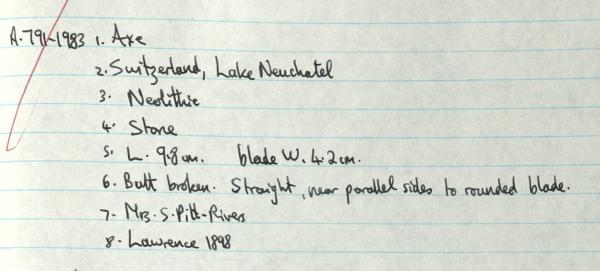 A.791-1983 1. Axe
2. Switzerland, Lake Neuchatel
3. Neolithic
4. Stone
5. L. 9.8cm. blade W. 4.2cm.
6. Butt broken. Straight, near parallel sides to rounded blade.
7. Mrs. S. Pitt-Rivers
8. Lawrence 1898